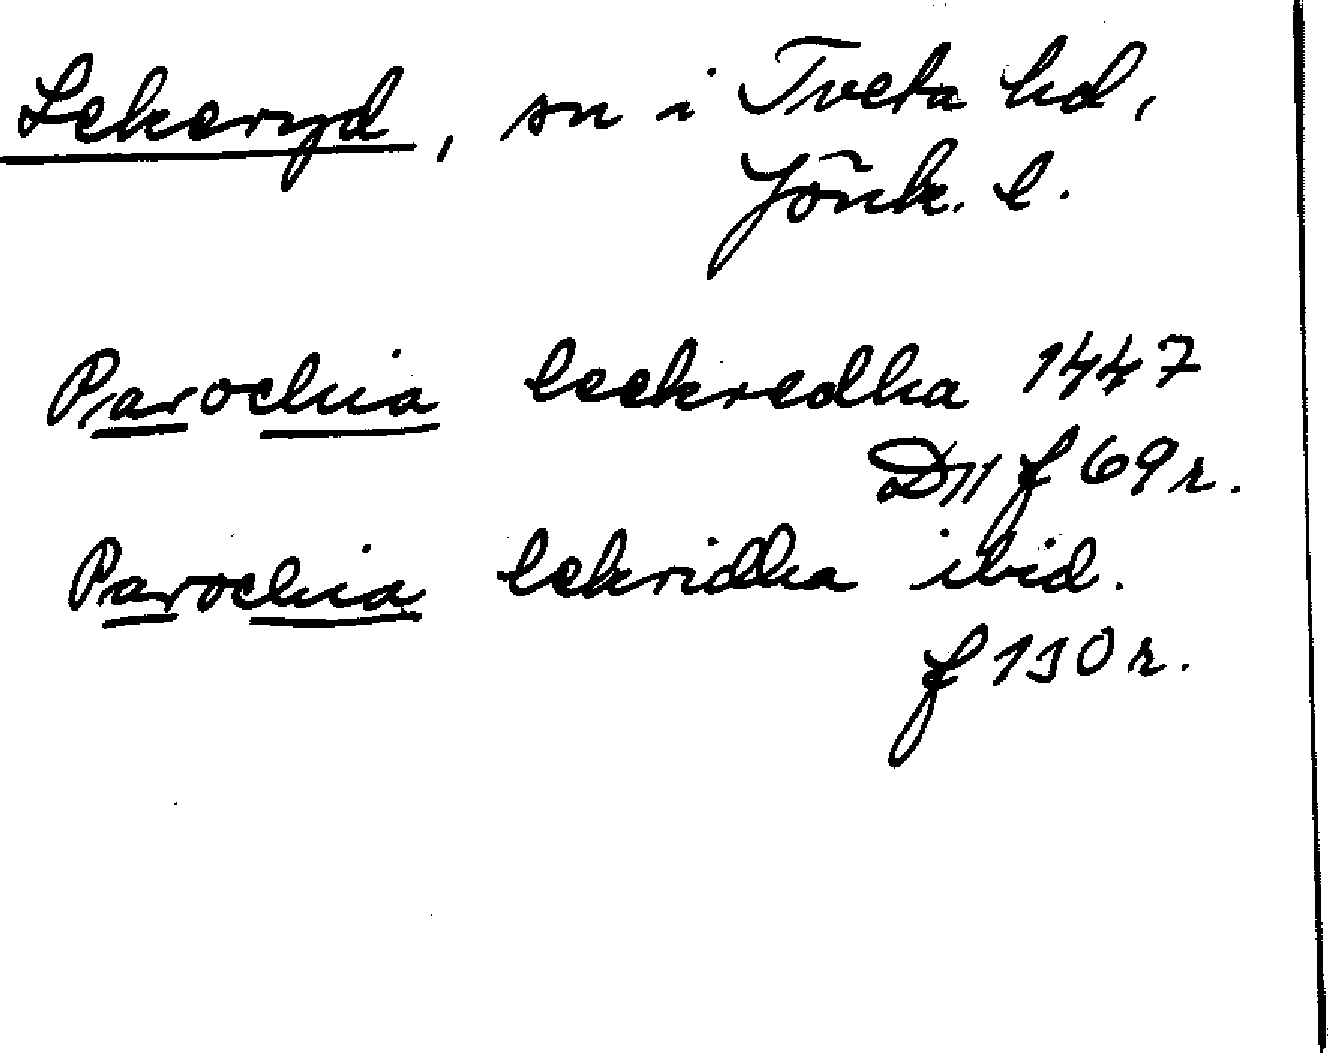 Lekeryd, sn i Tveta hd,
Jönk. l.
Parochia leekredha 1447
D11 f 69r.
Parochia lekridha ibid.
f 130r.